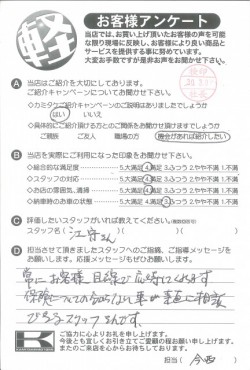 軽
お客様アンケート
当店では、お買い上げ頂いたお客様の声を可能
な限り現場に反映し、お客様により良い商品と
サービスを提供する事に努めています。
大変お手数ですが是非お声をお聞かせ下さい。
A 当店はご紹介を大切にしております。
ご紹介キャンペーンについてお聞かせ下さい。
ご紹介キャンペーンのご説明はありましたでしょうか
はい いいえ
具体的にご紹介頂ける方とのご関係をお聞かせ頂けますでしょうか
ご親族 ご友人 職場の方 機会があれば紹介したい
B 当店を実際にご利用になった印象をお聞かせ下さい。
総合的な満足度 5.大満足 4.満足 3.ふつう 2.やや不満 1.不満
スタッフの対応 5.大満足 4.満足 3.ふつう 2.やや不満 1.不満
お店の雰囲気、清掃 5.大満足 4.満足 3.ふつう 2.やや不満 1.不満
納車時のお車の状態 5.大満足 4.満足 3.ふつう 2.やや不満 1.不満
C 評価したいスタッフがいれば教えてください。
スタッフ名( 江守さん )
D 担当させて頂きましたスタッフへのご指摘、ご指導メッセージを
お願いします。応援メッセージもぜひお願いします。
常にお客様目線で
保険についての分らない事が普通に相談
できるスタッフさんです。
ご協力に心よりお礼を申し上げます。
今後とも宜しくお引き立てご愛顧の程お願い申し上げます。
またのご来店を心からお待ちしております。
担当( 今西 )